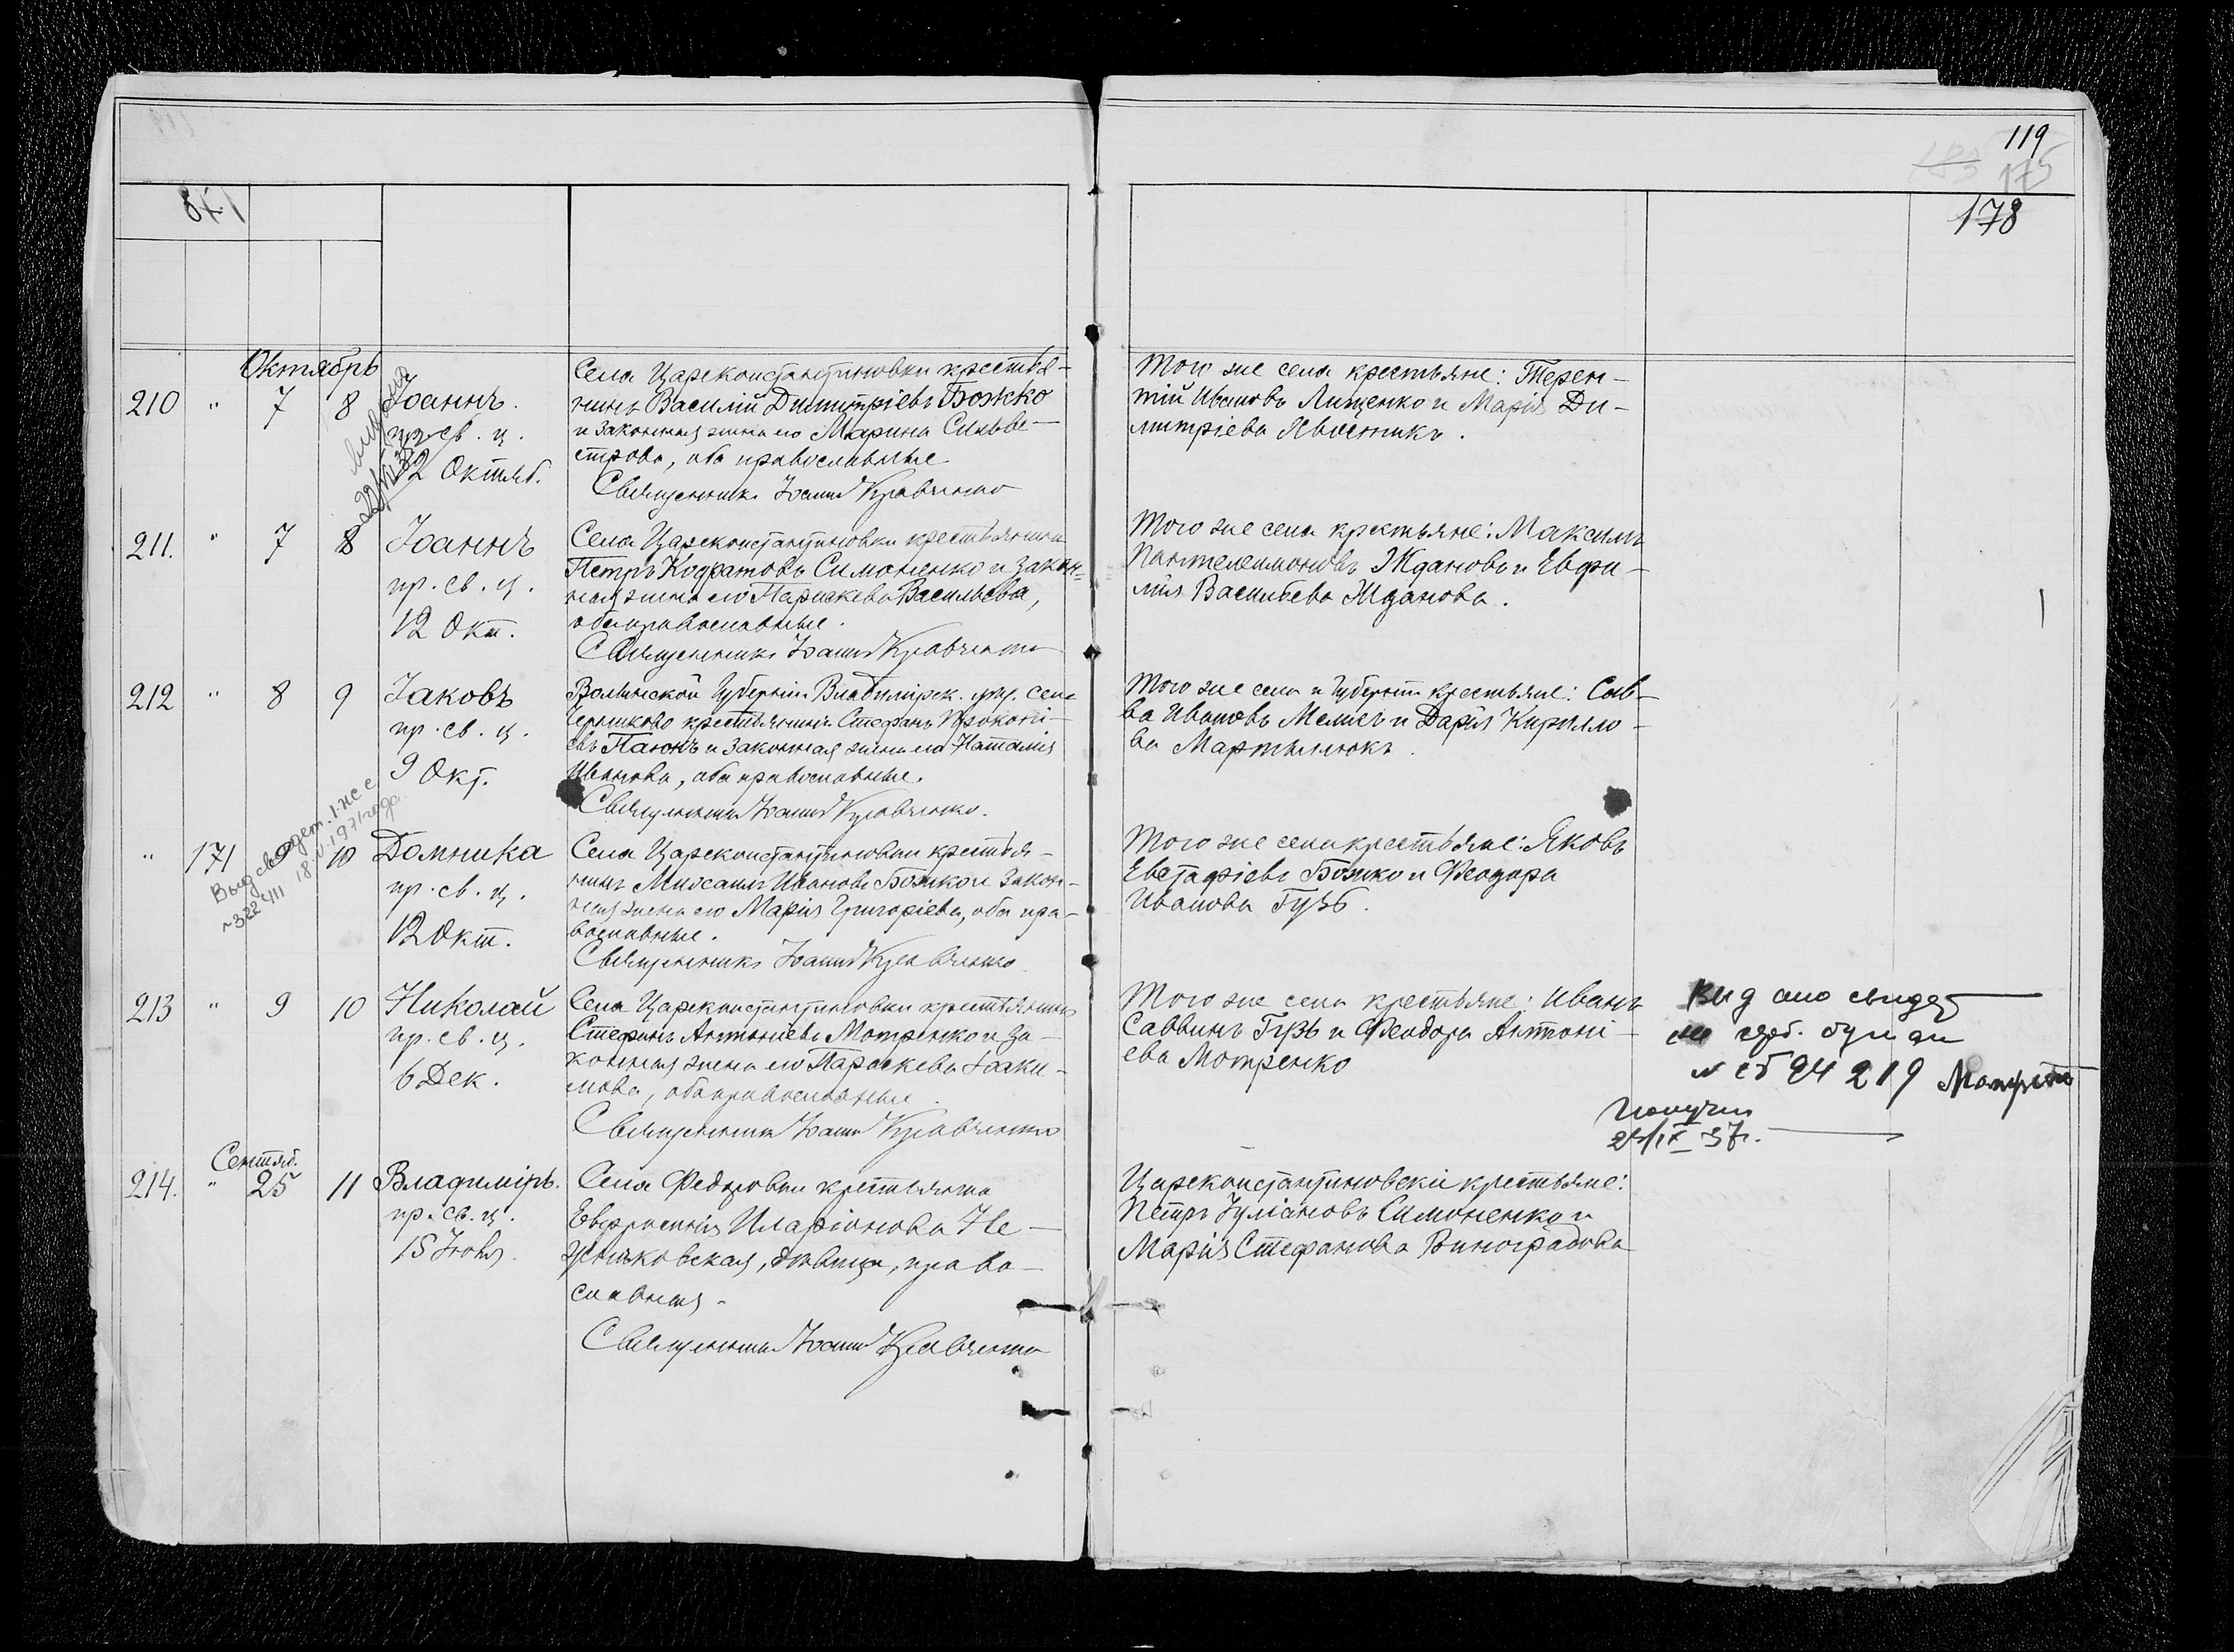 119
175
178
Октябрь
210 " 7 8 Іоаннъ.
пр. св. ц.
12 Октяб.
Села Цареконстантиновки крестья-
нинъ Василій Димитріевъ Божко
и законная жена его Марина Сильве-
строва, оба православные
Священникъ Іоаннъ Кравченко
Того же села крестьяне: Терен-
тій Ивановъ Лищенко и Марія Ди-
митріева Хвостикъ.
211. " 7 8 Іоаннъ
пр. св. ц.
12 Окт.
Села Цареконстантиновки крестьянинъ
Петръ Кодратовъ Симоненко и закон-
ная жена его Параскева Васильева,
оба православные.
Священникъ Іоаннъ Кравченко
Того же села крестьяне: Максимъ
Пантелеимоновъ Ждановъ и Евфи-
мія Васильева Жданова.
212 " 8 9 Іаковъ
пр. св. ц.
9 Окт.
Волынской Губерніи Владимірск. уѣз. села
крестьянинъ Стефанъ Прокопі-
евъ Панюкъ и законная жена его Наталія
Иванова, оба православные.
Священникъ Іоаннъ Кравченко.
Того же села и Губерніи крестьяне: Сав-
ва Ивановъ и Дарія Кирилло-
ва Мартынюкъ.
" 171 9 10 Домника
пр. св. ц.
12 Окт.
Выд свидет. І-ЖС
№322411 18.V.1971 года
Села Цареконстантиновки крестья-
нинъ Михаилъ Ивановъ Божко и закон-
ная жена его Марія Григоріева, оба пра-
вославные.
Священникъ Іоаннъ Кравченко
Того же села крестьяне: Яковъ
Евстафіевъ Божко и Феодора
Иванова Гузь.
213 " 9 10 Николай
пр. св. ц.
6 Дек.
Села Цареконстантиновки крестьянинъ
Стефанъ Антоніевъ Мотренко и за-
конная жена его Параскева Іоаки-
мова, оба православные.
Священникъ Іоаннъ Кравченко
Того же села крестьяне: Иванъ
Саввинъ Гузь и Феодора Антоні-
ева Мотренко
Выдано свидет
на бумаги
№ 94219
Получил
IX 37г.
Сентяб.
214. " 25 11 Владиміръ.
пр. св. ц.
15 Іюля.
Села Федоровки крестьянка
Евфросинія Иларіонова Не-
дѣвица, право-
славная.
Священникъ Іоаннъ Кравченко
Цареконстантиновскіе крестьяне:
Петръ Іуліановъ Симоненко и
Марія Стефанова Виноградова